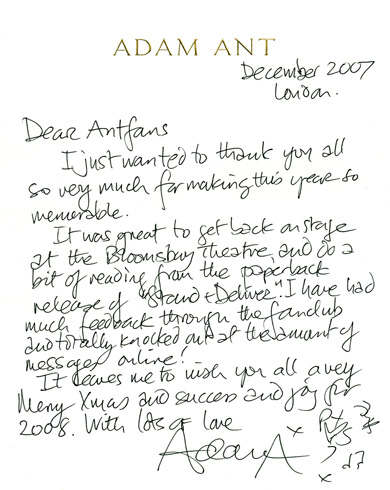 ADAM ANT
December 2007
London.
Dear Antfans
I just wanted to thank you all
so very much for making this year so
memorable.
It was great to get back on stage
at the Bloomsbury Theatre, and do a
bit of reading from the paperback
release of "Stand & Deliver". I have had
much feedback through the fanclub
and totally knocked out at the amount of
messages online!
It leaves me to wish you all a very
Merry Xmas and success and joy for
2008. With lots of love
Adam A
x
x